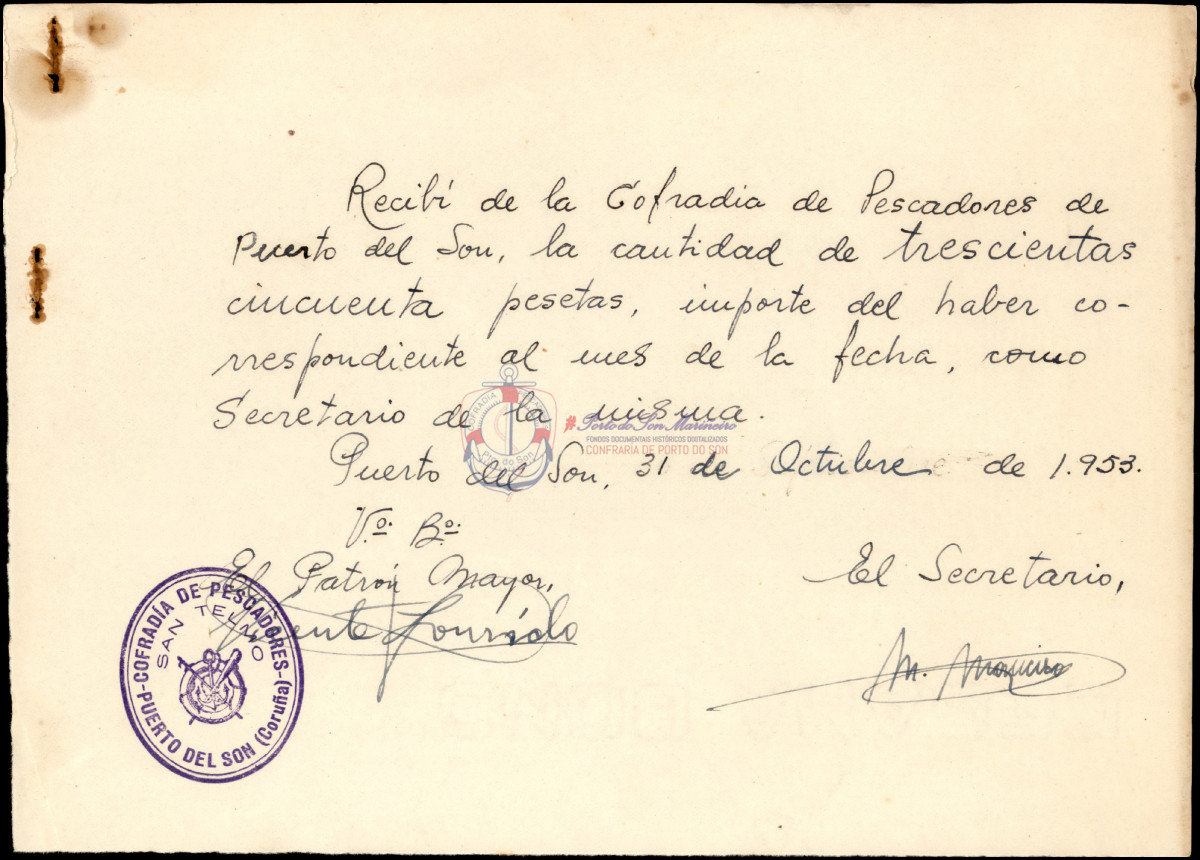 Recibí de la Cofradia de Pescadores de
Puerto del Son, la cantidad de trescientas
cincuenta pesetas, importe del haber co-
rrespondiente al mes de la fecha, como
Secretario de la misma.
Puerto del Son, 31 de Octubre de 1.953.
Vº. Bº.
El Patrón Mayor,
El Secretario,
M.
COFRADÍA DE PESCADORES
SAN TELMO
PUERTO DEL SON (Coruña)
COFRADIA
Pto. do Son
#Porto do Son Marineiro
FONDOS DOCUMENTAIS HISTÓRICOS DIGITALIZADOS
CONFRARÍA DE PORTO DO SON